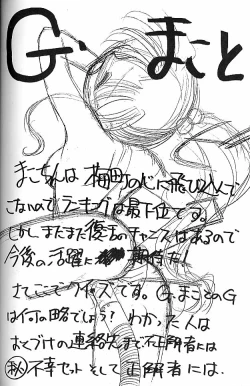 G. まこと
まこちんは 梅町の心に飛び込んで
こないので ランキングは最下位です。
しかし、まだまだ復古のチャンスはあるので
今後の活躍に 期待だ!
さてここでクイズです。G.まことのG
は何の略でしょう? わかった人は
おくづけの連絡先まで 不正解者には
㊙不幸セット そして 正解者には.